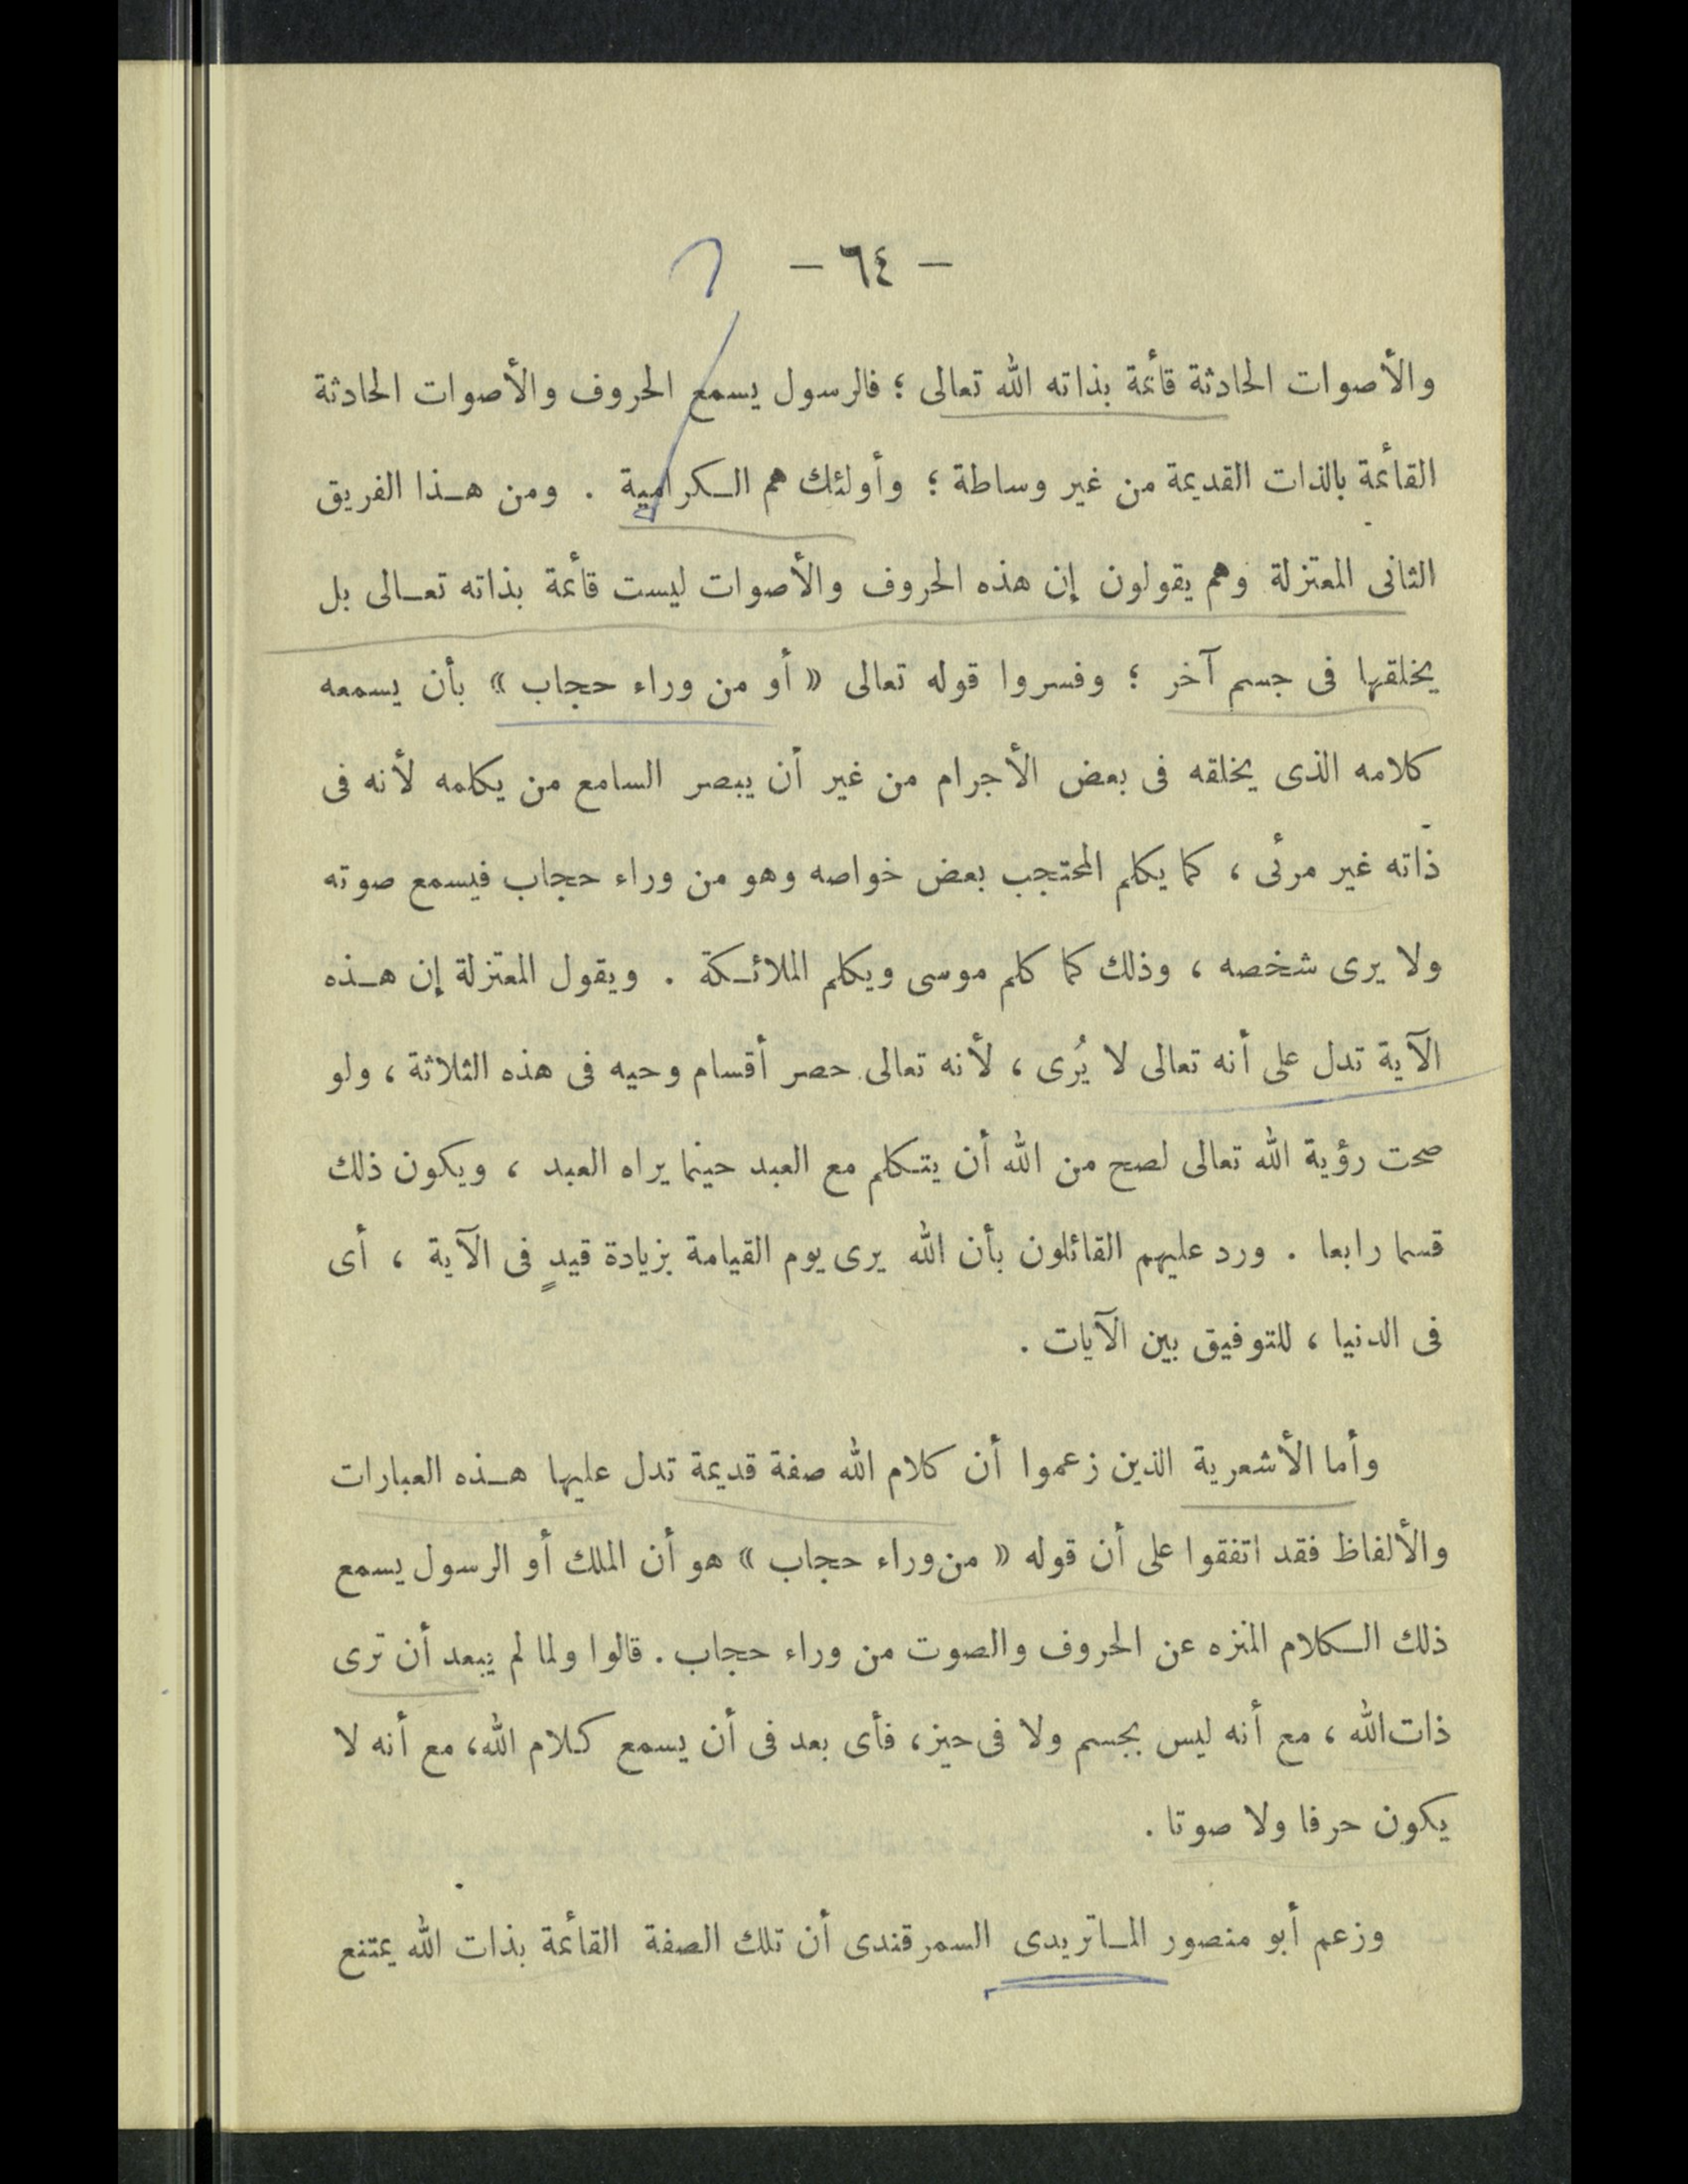 — ٦٤ —
والأصوات الحادثة قائمة بذاته الله تعالى ؛ فالرسول يسمع الحروف والأصوات الحادثة
القائمة بالذات القديمة من غير وساطة ؛ وأولئك هم الكرامية . ومن هذا الفريق
الثانى المعتزلة وهم يقولون إن هذه الحروف والأصوات ليست قائمة بذاته تعالى بل
يخلقها فى جسم آخر ؛ وفسروا قوله تعالى « أو من وراء حجاب » بأن يسمعه
كلامه الذى يخلقه فى بعض الأجرام من غير أن يبصر السامع من يكلمه لأنه فى
ذاته غير مرئى ، كما يكلم المحتجب بعض خواصه وهو من وراء حجاب فيسمع صوته
ولا يرى شخصه ، وذلك كما كلم موسى ويكلم الملائكة . ويقول المعتزلة إن هذه
الآية تدل على أنه تعالى لا يُرى ، لأنه تعالى حصر أقسام وحيه فى هذه الثلاثة ، ولو
صحت رؤية الله تعالى لصح من الله أن يتكلم مع العبد حينما يراه العبد ، ويكون ذلك
قسما رابعا . ورد عليهم القائلون بأن الله يرى يوم القيامة بزيادة قيدٍ فى الآية ، أى
فى الدنيا ، للتوفيق بين الآيات .
وأما الأشعرية الذين زعموا أن كلام الله صفة قديمة تدل عليها هذه العبارات
والألفاظ فقد اتفقوا على أن قوله « من وراء حجاب » هو أن الملك أو الرسول يسمع
ذلك الكلام المنزه عن الحروف والصوت من وراء حجاب . قالوا ولما لم يبعد أن ترى
ذات الله ، مع أنه ليس بجسم ولا فى حيز ، فأى بعد فى أن يسمع كلام الله ، مع أنه لا
يكون حرفا ولا صوتا .
وزعم أبو منصور الماتريدى السمرقندى أن تلك الصفة القائمة بذات الله يمتنع